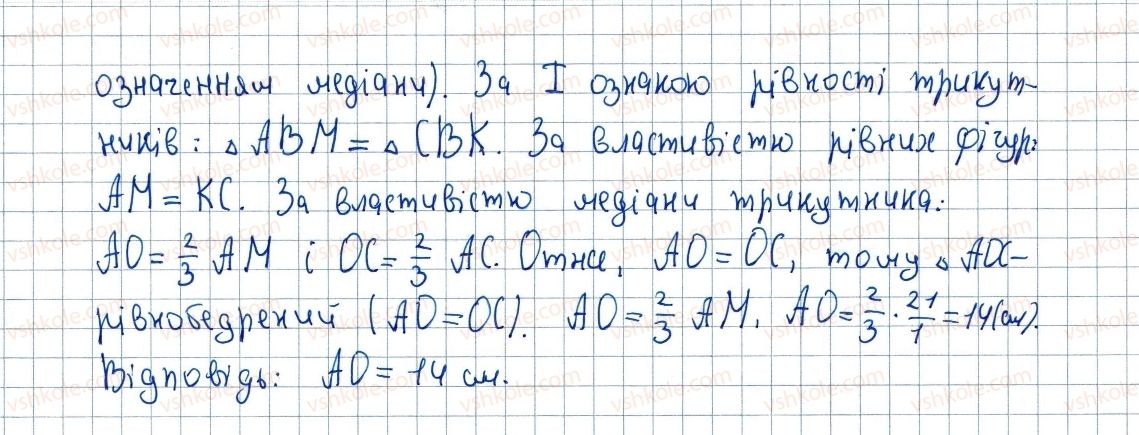 означенням медіани). За I ознакою рівності трикут-
ників: △ ABM = △ CBK. За властивістю рівних фігур:
AM = KC. За властивістю медіани трикутника:
AO = 2/3 AM і OC = 2/3 AC. Отже, AO = OC, тому △ AOC -
рівнобедрений (AO = OC). AO = 2/3 AM. AO = 2/3 · 21/1 = 14 (см).
Відповідь: AO = 14 см.